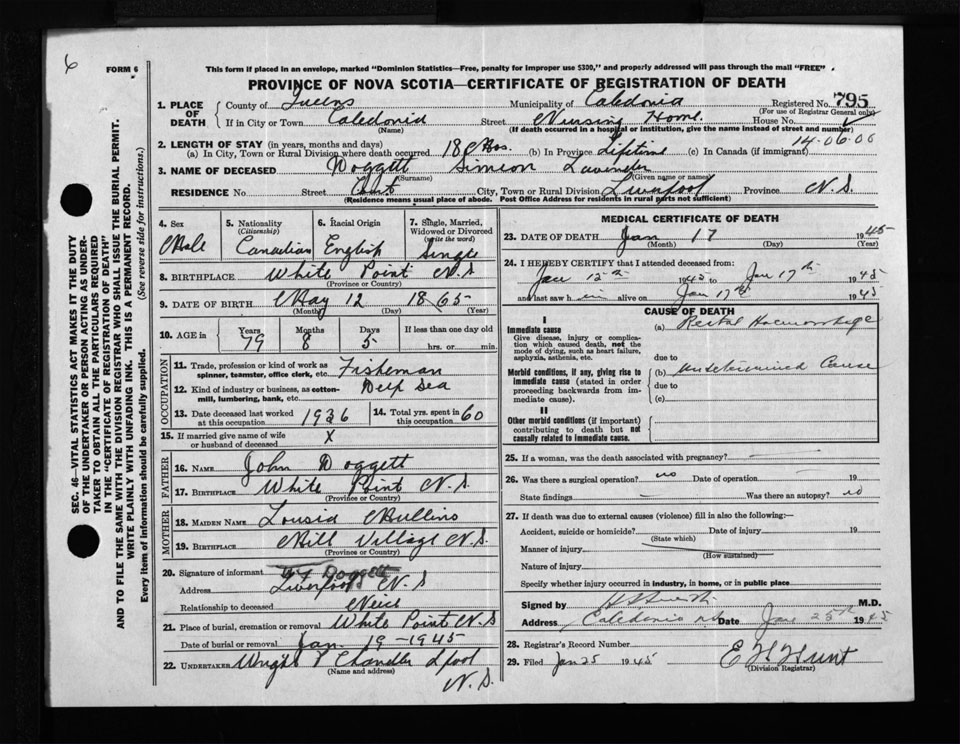 6
FORM 6
This form if placed in an envelope, marked "Dominion Statistics—Free, penalty for improper use $300," and properly addressed will pass through the mail "FREE"
PROVINCE OF NOVA SCOTIA—CERTIFICATE OF REGISTRATION OF DEATH
1. PLACE OF DEATH
County of Queens Municipality of Caledonia Registered No. 795
(For use of Registrar General only)
If in City or Town Caledonia Street Nursing Home. House No.
(Name) (If death occurred in a hospital or institution, give the name instead of street and number)
2. LENGTH OF STAY (in years, months and days) 14-06-00
(a) In City, Town or Rural Division where death occurred 18 Mos. (b) In Province Lifetime (c) In Canada (if immigrant)
3. NAME OF DECEASED Doggett Simeon
(Surname) (Given name or names)
RESIDENCE No Street Court City, Town or Rural Division Liverpool Province N.S.
(Residence means usual place of abode. Post Office Address for residents in rural parts not sufficient)
SEC. 46—VITAL STATISTICS ACT MAKES IT THE DUTY
OF THE UNDERTAKER OR PERSON ACTING AS UNDER-
TAKER TO OBTAIN ALL THE PARTICULARS REQUIRED
IN THE "CERTIFICATE OF REGISTRATION OF DEATH"
AND TO FILE THE SAME WITH THE DIVISION REGISTRAR WHO SHALL ISSUE THE BURIAL PERMIT.
WRITE PLAINLY WITH UNFADING INK. THIS IS A PERMANENT RECORD.
Every item of information should be carefully supplied. (See reverse side for instructions.)
4. Sex
Male
5. Nationality
(Citizenship)
Canadian
6. Racial Origin
English
7. Single, Married,
Widowed or Divorced
(write the word)
Single
8. BIRTHPLACE White Point N.S
(Province or Country)
9. DATE OF BIRTH May 12 1865
(Month) (Day) (Year)
10. AGE in Years Months Days If less than one day old
79 8 5 hrs. or min.
OCCUPATION
11. Trade, profession or kind of work as Fisheman
spinner, teamster, office clerk, etc.
12. Kind of industry or business, as cotton- Deep Sea
mill, lumbering, bank, etc.
13. Date deceased last worked 1936
at this occupation
14. Total yrs. spent in 60
this occupation
15. If married give name of wife X
or husband of deceased
FATHER
16. NAME John Doggett
17. BIRTHPLACE White Point N.S
(Province or Country)
MOTHER
18. MAIDEN NAME Lousia Mullins
19. BIRTHPLACE Mill Village N.S.
(Province or Country)
20. Signature of informant Doggett
Address Liverpool N.S
Relationship to deceased Neice
21. Place of burial, cremation or removal White Point N.S
Date of burial or removal Jan. 19-1945
22. UNDERTAKER Wright & Chandler Lpool
(Name and address)
N.S.
MEDICAL CERTIFICATE OF DEATH
23. DATE OF DEATH Jan 17 1945
(Month) (Day) (Year)
24. I HEREBY CERTIFY that I attended deceased from:
Jan 12th 1945 to Jan 17th 1945
and last saw him alive on Jan 17th 1945
CAUSE OF DEATH
I
Immediate cause (a) Rectal Haemorrhage
Give disease, injury or complica-
tion which caused death, not the
mode of dying, such as heart failure,
asphyxia, asthenia, etc. due to
Morbid conditions, if any, giving rise to (b) undetermined Cause
immediate cause (stated in order due to
proceeding backwards from im-
mediate cause). (c)
II
Other morbid conditions (if important)
contributing to death but not
causally related to immediate cause.
25. If a woman, was the death associated with pregnancy?
26. Was there a surgical operation? no Date of operation 19
State findings Was there an autopsy? no
27. If death was due to external causes (violence) fill in also the following:—
Accident, suicide or homicide? Date of injury 19
(State which)
Manner of injury
(How sustained)
Nature of injury
Specify whether injury occurred in industry, in home, or in public place
Signed by M.D.
Address Caledonia NS Date Jan 25th 1945
28. Registrar's Record Number
29. Filed Jan 25 1945 E H Hunt
(Division Registrar)